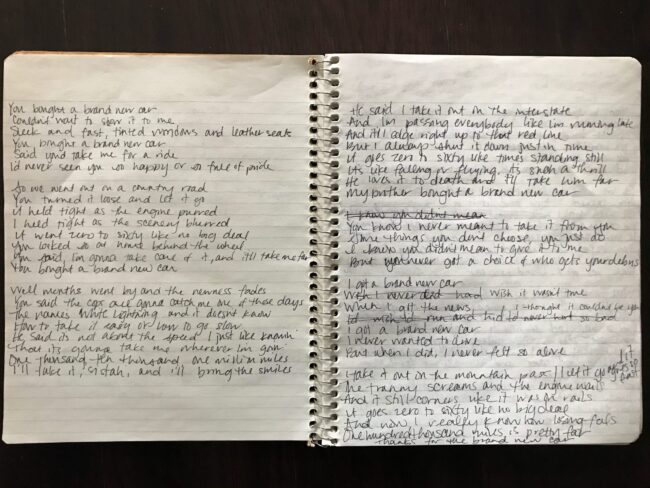 You bought a brand new car
Couldn't wait to show it to me
Sleek and fast, tinted windows and leather seats
You bought a brand new car
Said you'd take me for a ride
I'd never seen you so happy or so full of pride
So we went out on a country road
You turned it loose and let it go
It held tight as the engine purred
I held tight as the scenery blurred
It went zero to sixty like no big deal
You looked so at home behind the wheel
You said, I'm gonna take care of it, and it'll take me far
You bought a brand new car
Well months went by and the newness fades
You said the cops are gonna catch me one of these days
The name's White Lightning and it doesn't know
How to take it easy or how to go slow
He said its not about the speed I just like knowin'
That it's gonna take me wherever I'm goin'
One thousand, ten thousand, one million miles
I'll take it, sistah, and I'll bring the smiles
He said I take it out on the interstate
And I'm passing everybody like I'm running late
And it'll edge right up to that red line
But I always shut it down just in time
It goes zero to sixty like times standing still
Its like falling or flying, its such a thrill
He loves it to death and it'll take him far
My brother bought a brand new car
I know you didn't mean
You know I never meant to take it from you
Some things you don't choose, you just do
I know you didn't mean to give it to me
But you never get a choice of who gets your debris
I got a brand new car
Wish I never did had wish it wasn't mine
When I got the news, I thought it couldn't be
I wish run and hid never hurt so bad
I got a brand new car
I never wanted to drive
But when I did, I never felt so alive
I take it out on the mountain pass / I let it go
The tranny screams and the engine wails
And it still corners like it was on rails
It goes zero to sixty like no big deal
And now I really know how losing feels
One hundred thousand miles is pretty far
Thanks for the brand new car